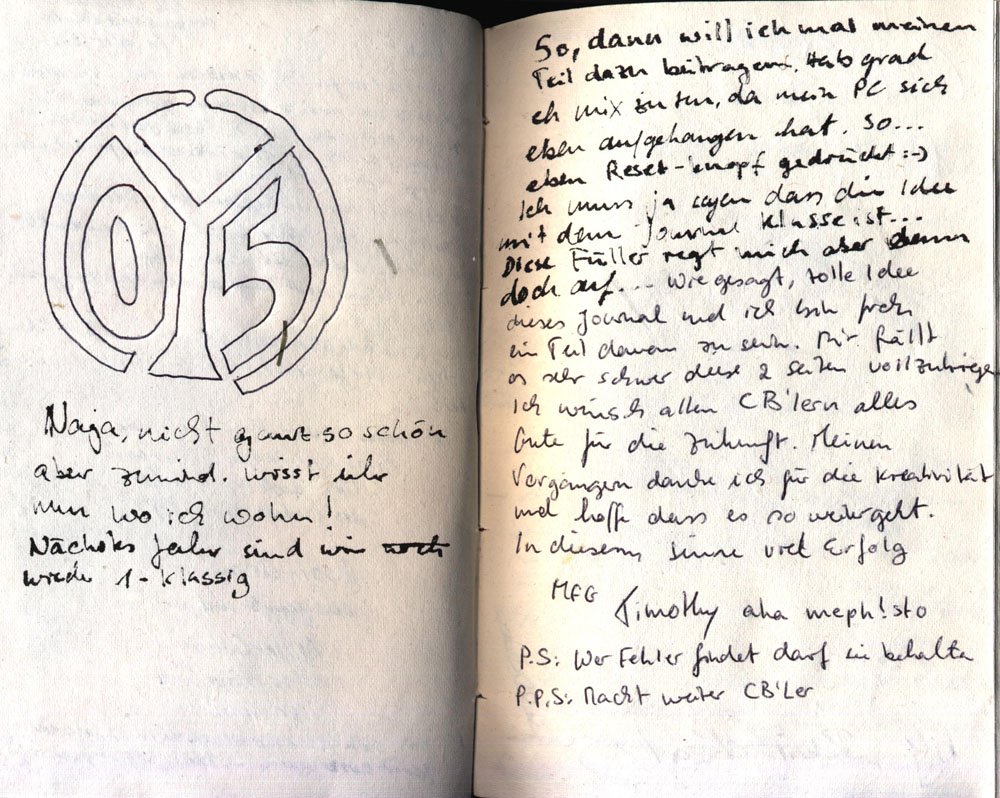 05
Naja, nicht ganz so schön
aber zumind. wisst ihr
nun wo ich wohn!
Nächstes Jahr sind wir noch
wieder 1-klassig
So, dann will ich mal meinen
Teil dazu beitragen. Hab grad
eh nix zu tun, da mein PC sich
eben aufgehangen hat. So...
eben Reset-knopf gedrückt :-)
Ich muss ja sagen dass die Idee
mit dem Journal klasse ist...
Diese Füller regt mich aber denn
doch auf... Wie gesagt, tolle Idee
dieses Journal und ich bin froh
ein Teil davon zu sein. Mir fällt
es sehr schwer diese 2 Seiten vollzukriegen
Ich wünsch allen CB'lern alles
Gute für die Zukunft. Meinen
Vorgängern danke ich für die Kreativität
und hoffe dass es so weitergeht.
In diesem Sinne viel Erfolg
MFG Timothy aka meph!sto
P.S: Wer Fehler findet darf ein behalten
P.P.S: Macht weiter CB'Ler